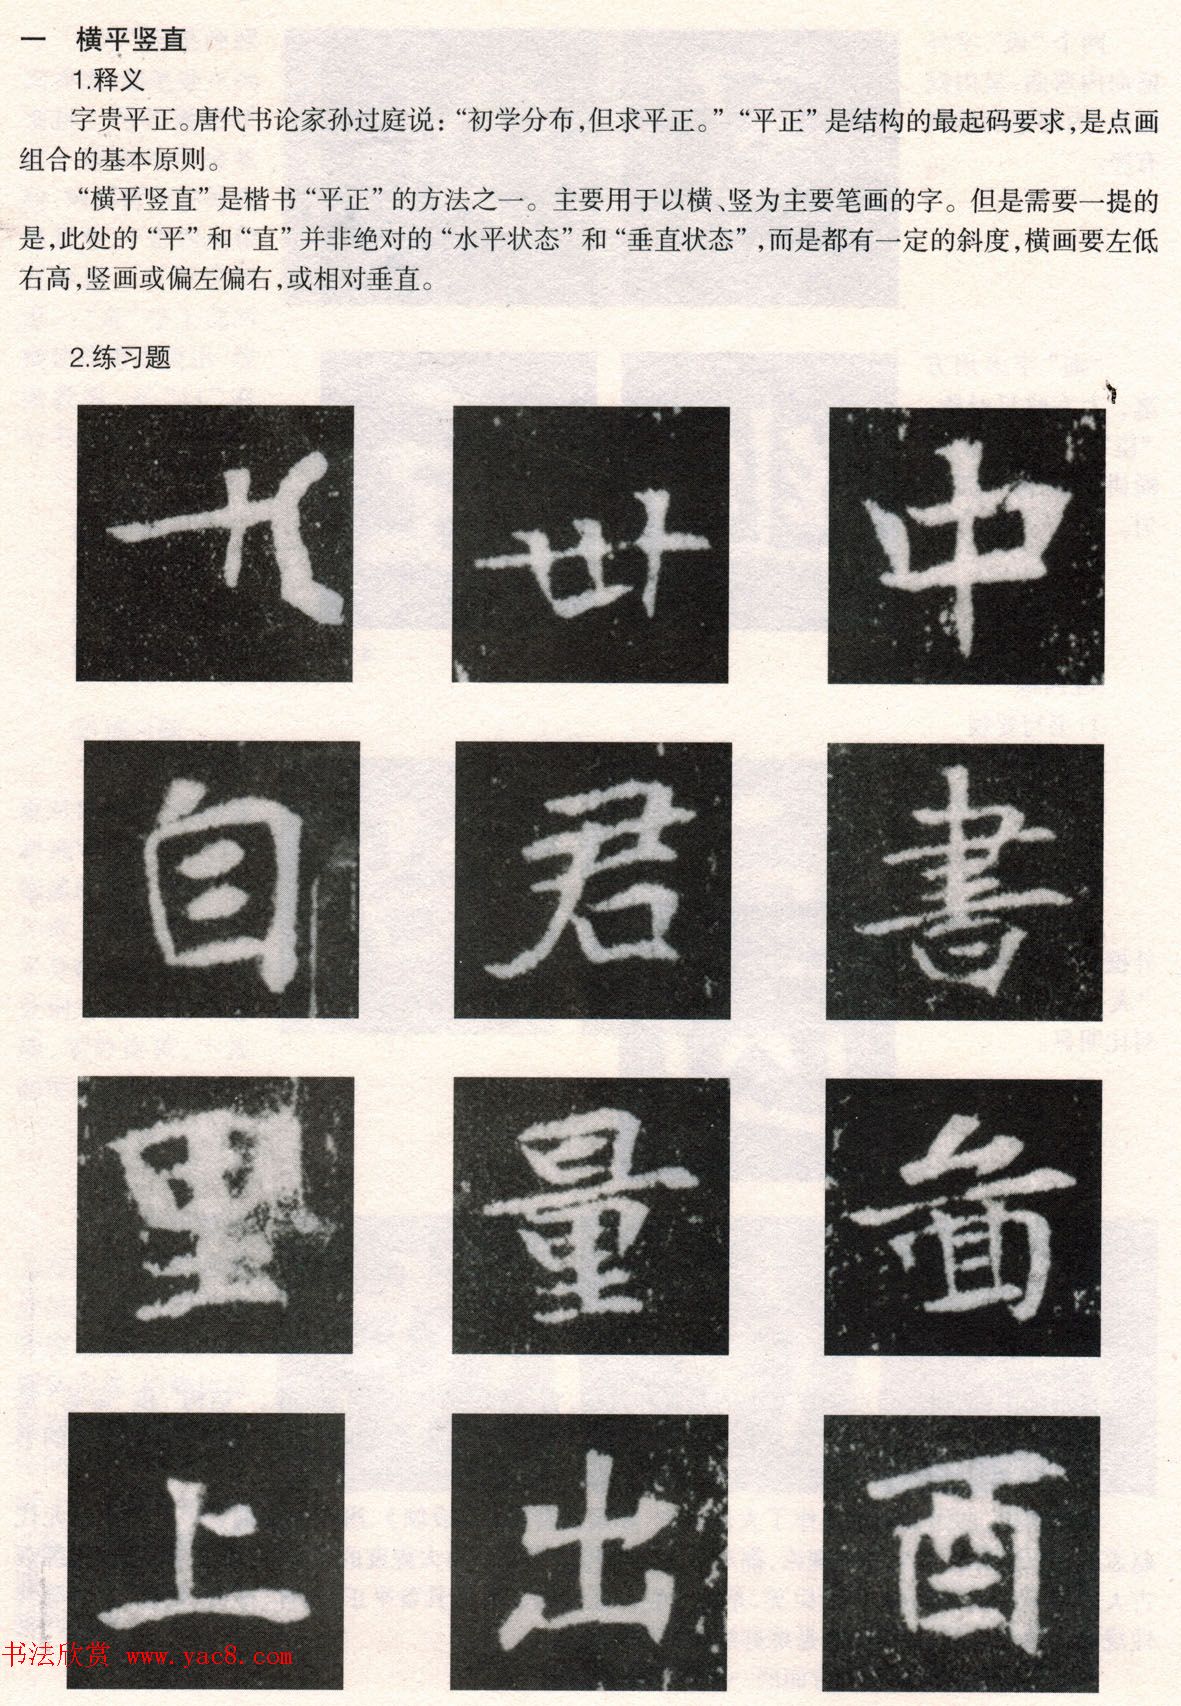 一　横平竖直
1.释义
字贵平正。唐代书论家孙过庭说：“初学分布，但求平正。”“平正”是结构的最起码要求，是点画
组合的基本原则。
“横平竖直”是楷书“平正”的方法之一。主要用于以横、竖为主要笔画的字。但是需要一提的
是，此处的“平”和“直”并非绝对的“水平状态”和“垂直状态”，而是都有一定的斜度，横画要左低
右高，竖画或偏左偏右，或相对垂直。
2.练习题
中
自 君 書
里 量 面
上 出 酉
书法欣赏 www.yac8.com